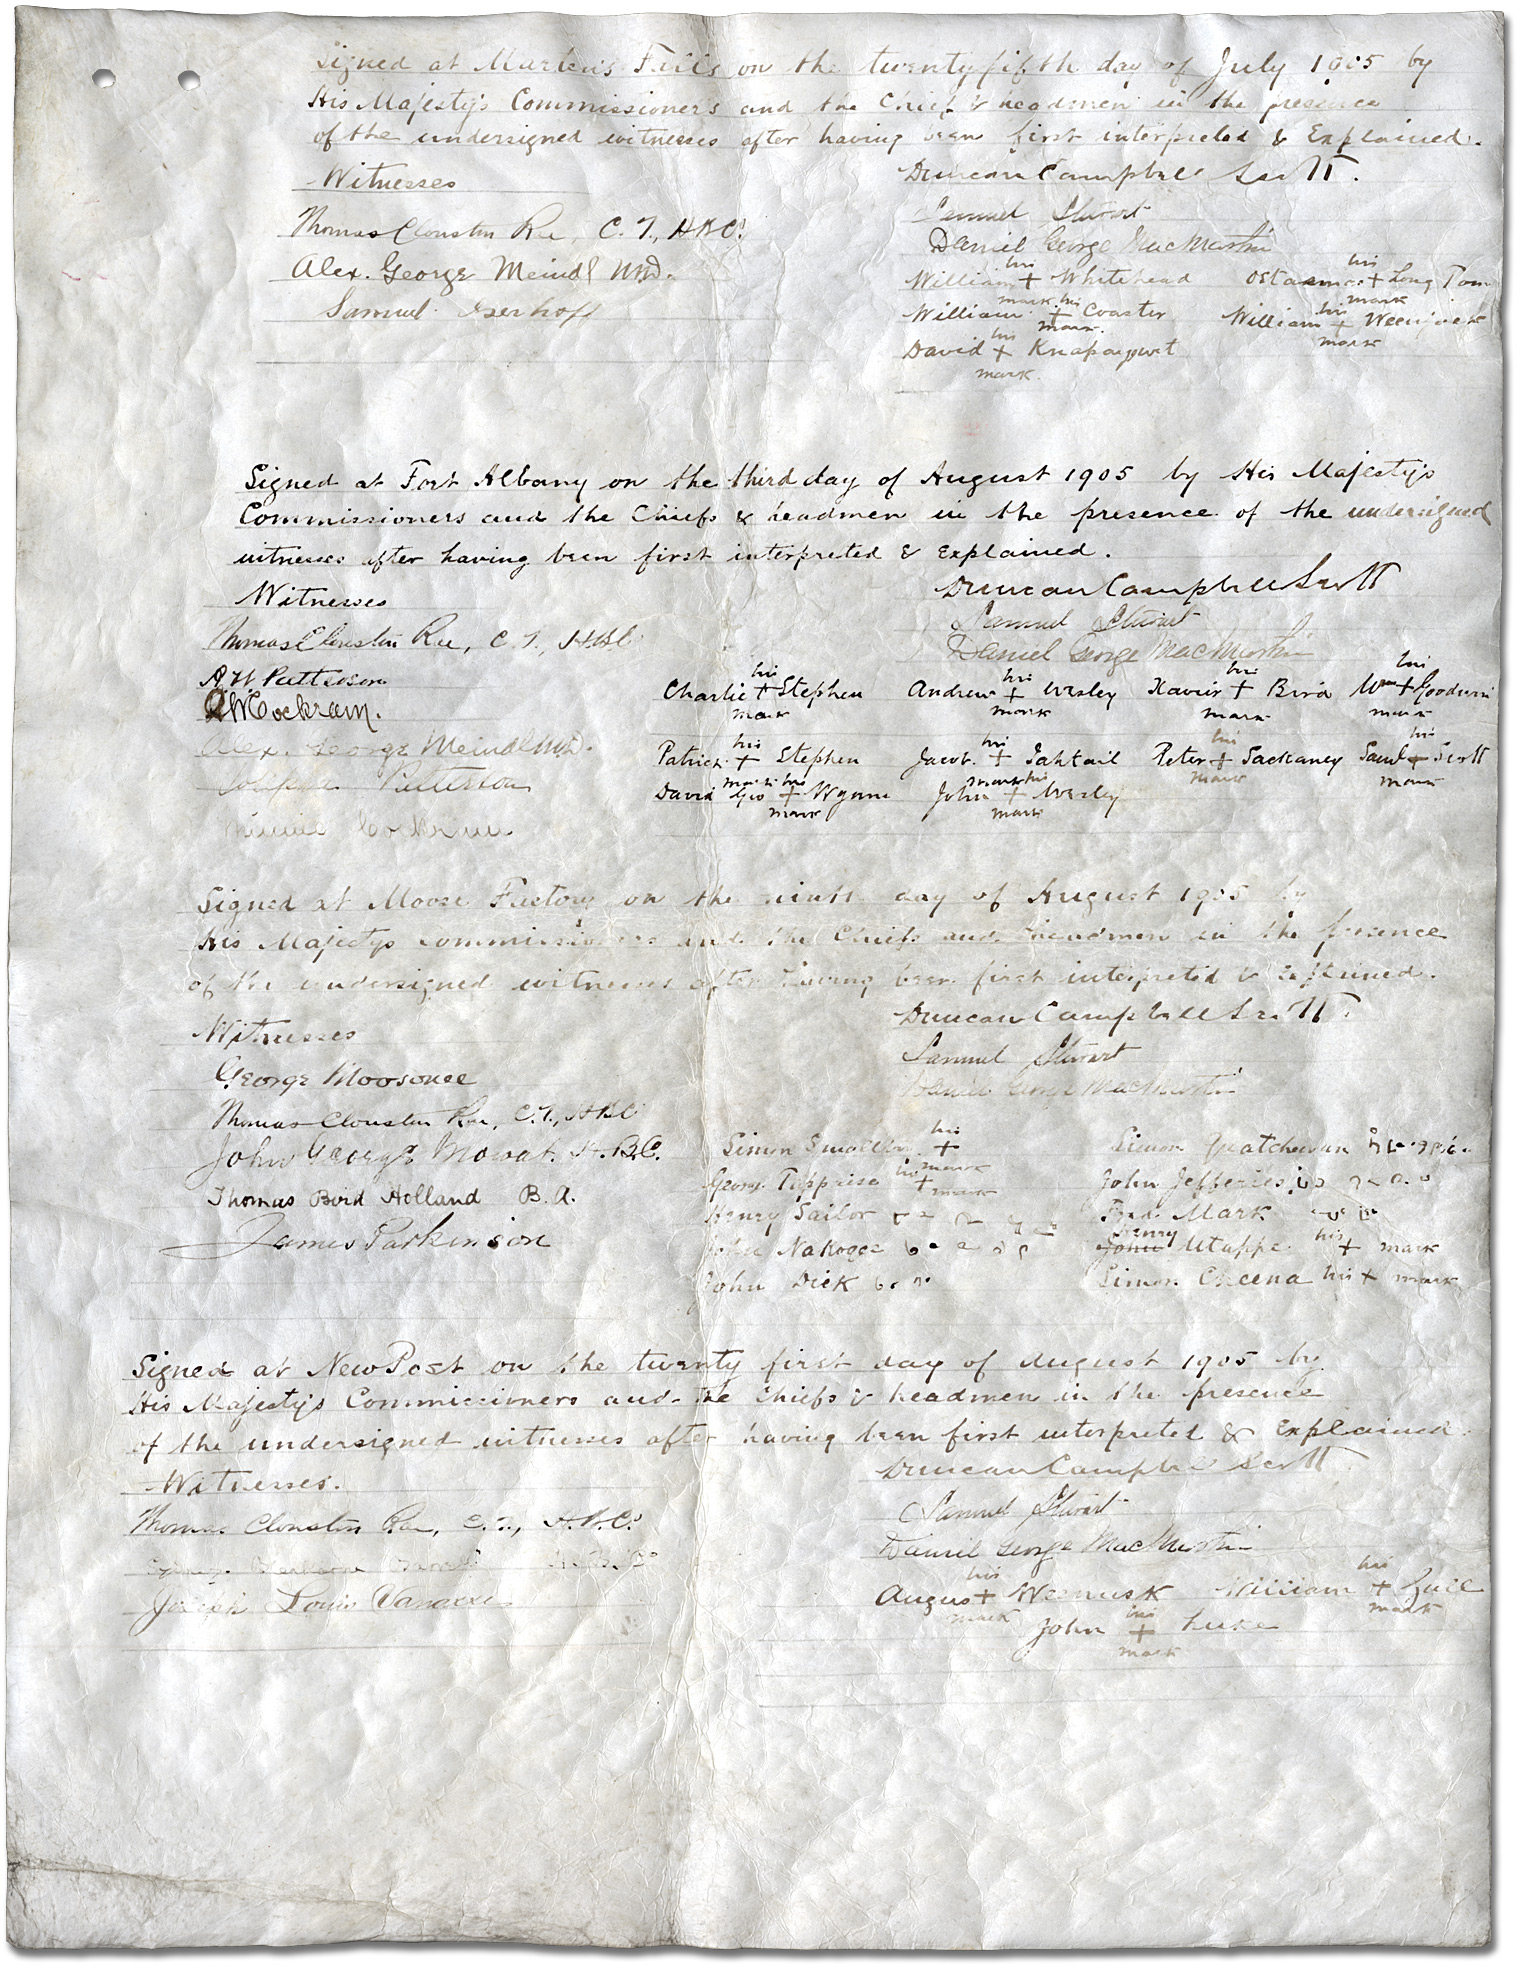 Signed at Marten's Falls on the twenty fifth day of July 1905 by
His Majesty's Commissioners and the Chief & headmen in the presence
of the undersigned witnesses after having been first interpreted & Explained.
Witnesses
Duncan Campbell Scott.
Thomas Clouston Rae, C.T., HBC.
Samuel Stewart
Daniel George MacMartin
Alex. George Meindl MD.
his his
William + Whitehead + Long Tom
mark mark
Samuel Iserhoff
his his
William + Coaster William +
mark. mark
his
David + Knapayswet
mark.
Signed at Fort Albany on the third day of August 1905 by His Majesty's
Commissioners and the Chiefs & headmen in the presence of the undersigned
witnesses after having been first interpreted & explained.
Witnesses
Duncan Campbell Scott
Samuel Stewart
Thomas Clouston Rae, C.T., HBC
Daniel George MacMartin
A W Patterson
his his his his
Charlie + Stephen Andrew + Wesley Xavier + Bird Wm + Goodwin
mark mark mark mark
Cockram.
Alex. George Meindl MD.
his his his his
Patrick + Stephen Jacob + Tahtail Peter + Sackaney Saml + Scott
mark mark mark mark
Patterson
his his
David Geo + Wynne John + Wesley
mark mark
Minnie Cockram
Signed at Moose Factory on the ninth day of August 1905 by
His Majesty's Commissioners and the Chiefs and headmen in the presence
of the undersigned witnesses after having been first interpreted & explained.
Duncan Campbell Scott.
Witnesses
Samuel Stewart
George Moosonee
Daniel George MacMartin
Thomas Clouston Rae, C.T., HBC
John George Mowat. H.B.C.
his
Simon Smallboy + Simon Quatchewan
mark
George Tappaise his + mark John Jefferies
Thomas Bird Holland B.A.
Henry Sailor Fred Mark
James Parkinson
John Nakogee Henry Utappe his + mark
John Dick Simon Cheena his + mark
Signed at New Post on the twenty first day of August 1905 by
His Majesty's Commissioners and the Chiefs & headmen in the presence
of the undersigned witnesses after having been first interpreted & explained.
Duncan Campbell Scott
Witnesses.
Samuel Stewart
Thomas Clouston Rae, C.T., H.B.C.
Daniel George MacMartin
H.B.C.
his his
Angus + Weenusk William + Gull
mark mark
Joseph Louis Vanasse
his
John + Luke
mark